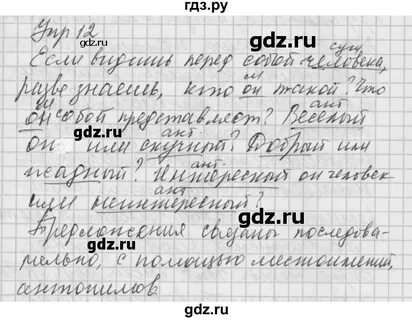 гдз.ру
Упр 12
сущ.
Если видишь перед собой человека,
м
разве знаешь, кто он такой? Что
м ант
он собой представляет? Веселый
ант.
он или скучный? Добрый или
ант.
жадный? Интересный он человек
ант
или неинтересный?
Предложения связаны последова-
тельно, с помощью местоимений,
антонимов
gdz.ru